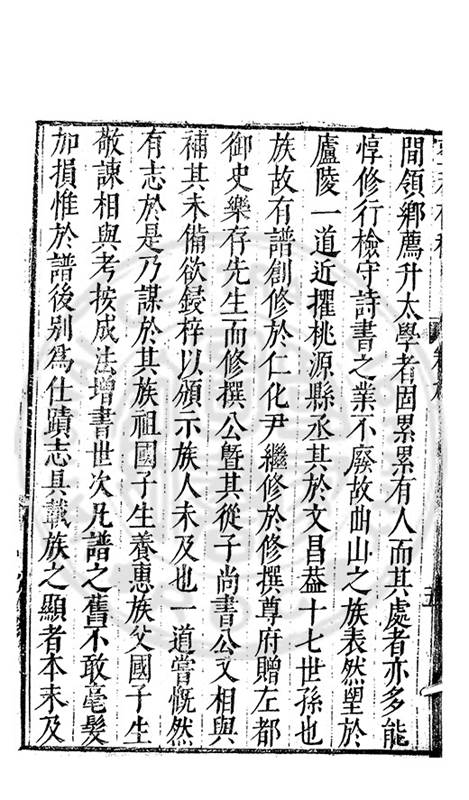 間領鄉薦升太學者固累累有人而其處者亦多能
惇修行檢守詩書之業不廢故曲山之族表然望於
廬陵一道近擢桃源縣丞其於文昌葢十七世孫也
族故有譜創修於仁化尹繼修於修撰尊府贈左都
御史樂存先生而修撰公暨其從子尚書公又相與
補其未備欲鋟梓以頒示族人未及也一道嘗慨然
有志於是乃謀於其族祖國子生養惠族父國子生
敬諫相與考按成法增書世次凡譜之舊不敢毫髮
加損惟於譜後别爲仕蹟志具載族之顯者本末及